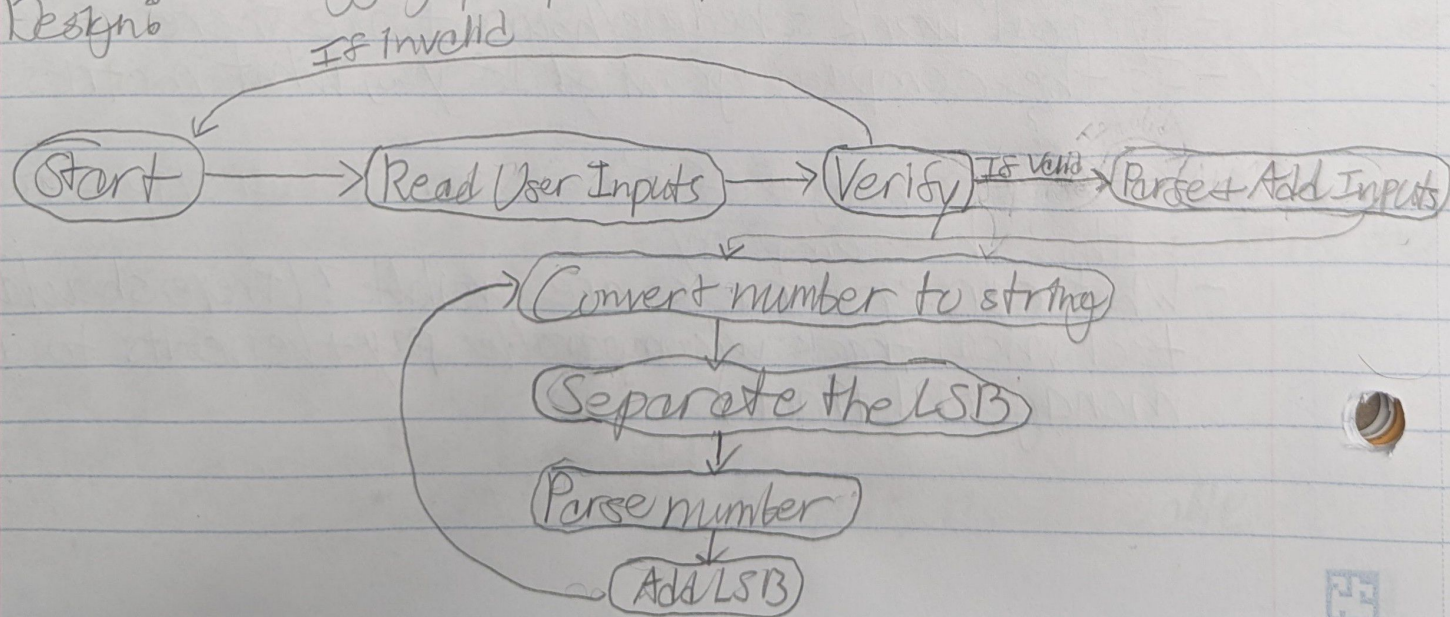 Design:
If Invalid
Start
Read User Inputs
Verify
If Valid
Parse + Add Inputs
Convert number to string
Separate the LSB
Parse number
Add LSB